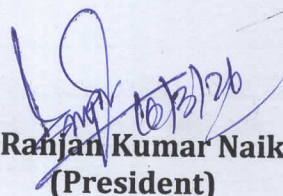 16/3/26
Ranjan Kumar Naik
(President)